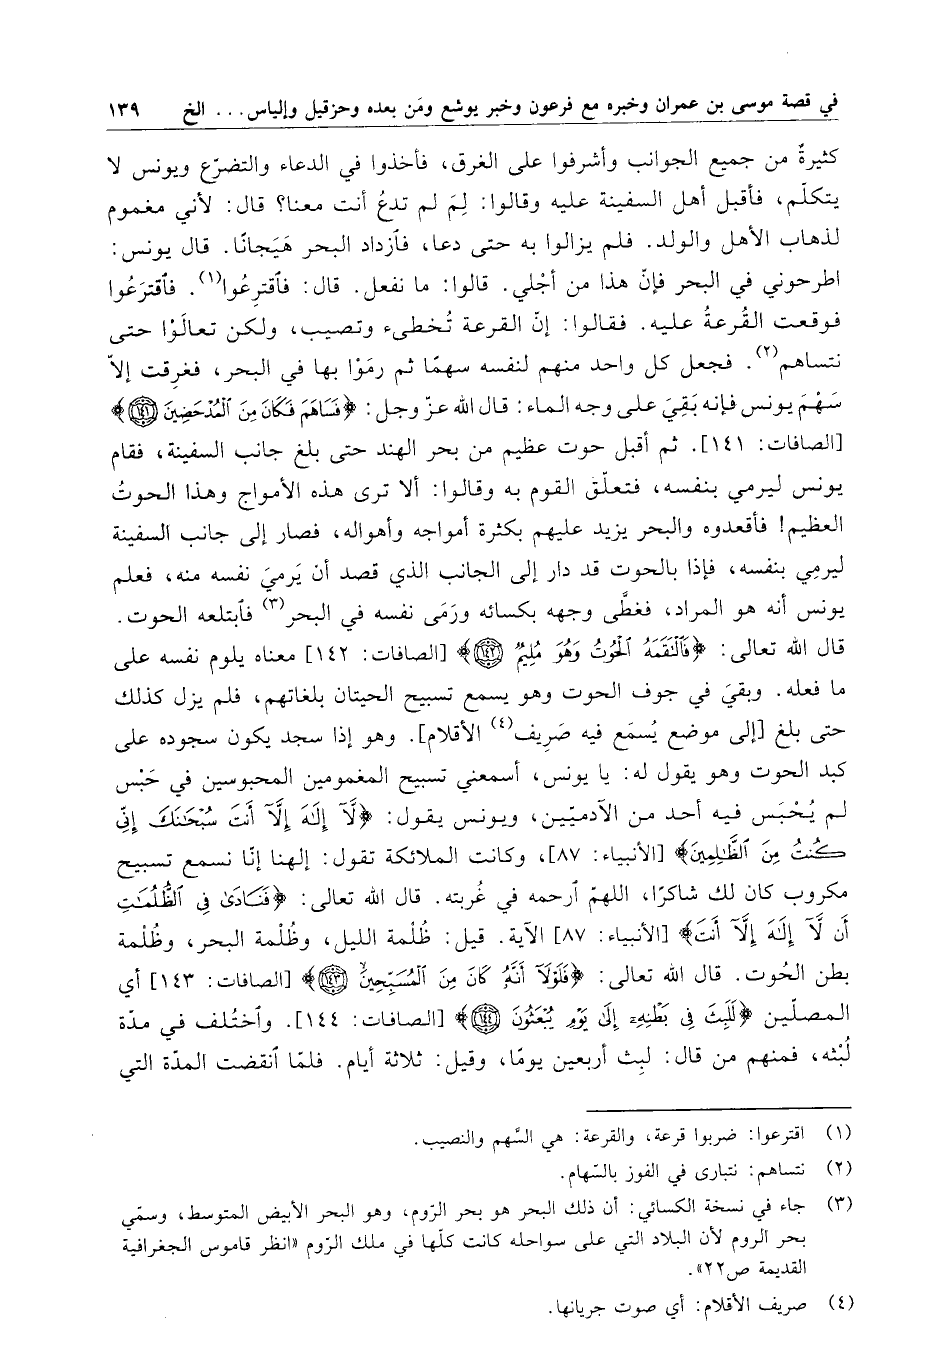 في قصة موسى بن عمران وخبره مع فرعون وخبر يوشع ومَن بعده وحزقيل وإلياس... الخ ١٣٩
كثيرةٌ من جميع الجوانب وأشرفوا على الغرق، فأخذوا في الدعاء والتضرّع ويونس لا
يتكلّم، فأقبل أهل السفينة عليه وقالوا: لِمَ لم تدعُ أنت معنا؟ قال: لأني مغموم
لذهاب الأهل والولد. فلم يزالوا به حتى دعا، فٱزداد البحر هَيَجانًا. قال يونس:
اطرحوني في البحر فإنّ هذا من أجْلي. قالوا: ما نفعل. قال: فٱقترِعُوا(١). فٱقترَعُوا
فوقعت القُرعةُ عليه. فقالوا: إنّ القرعة تُخطىء وتصيب، ولكن تعالَوْا حتى
نتساهم(٢). فجعل كل واحد منهم لنفسه سهمًا ثم رمَوْا بها في البحر، فغرِقت إلاّ
سَهْمَ يونس فإنه بَقِيَ على وجه الماء: قال الله عزّ وجل: ﴿فَسَاهَمَ فَكَانَ مِنَ ٱلْمُدْحَضِينَ ١٤١﴾
[الصافات: ١٤١]. ثم أقبل حوت عظيم من بحر الهند حتى بلغ جانب السفينة، فقام
يونس ليرمي بنفسه، فتعلّق القوم به وقالوا: ألا ترى هذه الأمواج وهذا الحوتُ
العظيم! فأقعدوه والبحر يزيد عليهم بكثرة أمواجه وأهواله، فصار إلى جانب السفينة
ليرمِي بنفسه، فإذا بالحوت قد دار إلى الجانب الذي قصد أن يَرميَ نفسه منه، فعلم
يونس أنه هو المراد، فغطَّى وجهه بكسائه ورَمَى نفسه في البحر(٣) فٱبتلعه الحوت.
قال الله تعالى: ﴿فَٱلْتَقَمَهُ ٱلْحُوتُ وَهُوَ مُلِيمٌ ١٤٢﴾ [الصافات: ١٤٢] معناه يلوم نفسه على
ما فعله. وبقيَ في جوف الحوت وهو يسمع تسبيح الحيتان بلغاتهم، فلم يزل كذلك
حتى بلغ [إلى موضع يُسمَع فيه صَرِيف(٤) الأقلام]. وهو إذا سجد يكون سجوده على
كبد الحوت وهو يقول له: يا يونس، أسمعني تسبيح المغمومين المحبوسين في حَبْس
لم يُحْبَس فيه أحد من الآدميّين، ويونس يقول: ﴿لَّآ إِلَٰهَ إِلَّآ أَنتَ سُبْحَٰنَكَ إِنِّى
كُنتُ مِنَ ٱلظَّٰلِمِينَ﴾ [الأنبياء: ٨٧]، وكانت الملائكة تقول: إلهنا إنّا نسمع تسبيح
مكروب كان لك شاكرًا، اللهمّ ٱرحمه في غُربته. قال الله تعالى: ﴿فَنَادَىٰ فِى ٱلظُّلُمَٰتِ
أَن لَّآ إِلَٰهَ إِلَّآ أَنتَ﴾ [الأنبياء: ٨٧] الآية. قيل: ظُلمة الليل، وظُلْمة البحر، وظُلْمة
بطن الحُوت. قال الله تعالى: ﴿فَلَوْلَآ أَنَّهُۥ كَانَ مِنَ ٱلْمُسَبِّحِينَ ١٤٣﴾ [الصافات: ١٤٣] أي
المصلّين ﴿لَلَبِثَ فِى بَطْنِهِۦٓ إِلَىٰ يَوْمِ يُبْعَثُونَ ١٤٤﴾ [الصافات: ١٤٤]. وٱختُلف في مدّة
لُبْثه، فمنهم من قال: لبِث أربعين يومًا، وقيل: ثلاثة أيام. فلمّا ٱنقضت المدّة التي
(١) اقترعوا: ضربوا قرعة، والقرعة: هي السَّهم والنصيب.
(٢) نتساهم: نتبارى في الفوز بالسّهام.
(٣) جاء في نسخة الكسائي: أن ذلك البحر هو بحر الرّوم، وهو البحر الأبيض المتوسط، وسمّي
بحر الروم لأن البلاد التي على سواحله كانت كلّها في ملك الرّوم «انظر قاموس الجغرافية
القديمة ص٢٢».
(٤) صريف الأقلام: أي صوت جريانها.